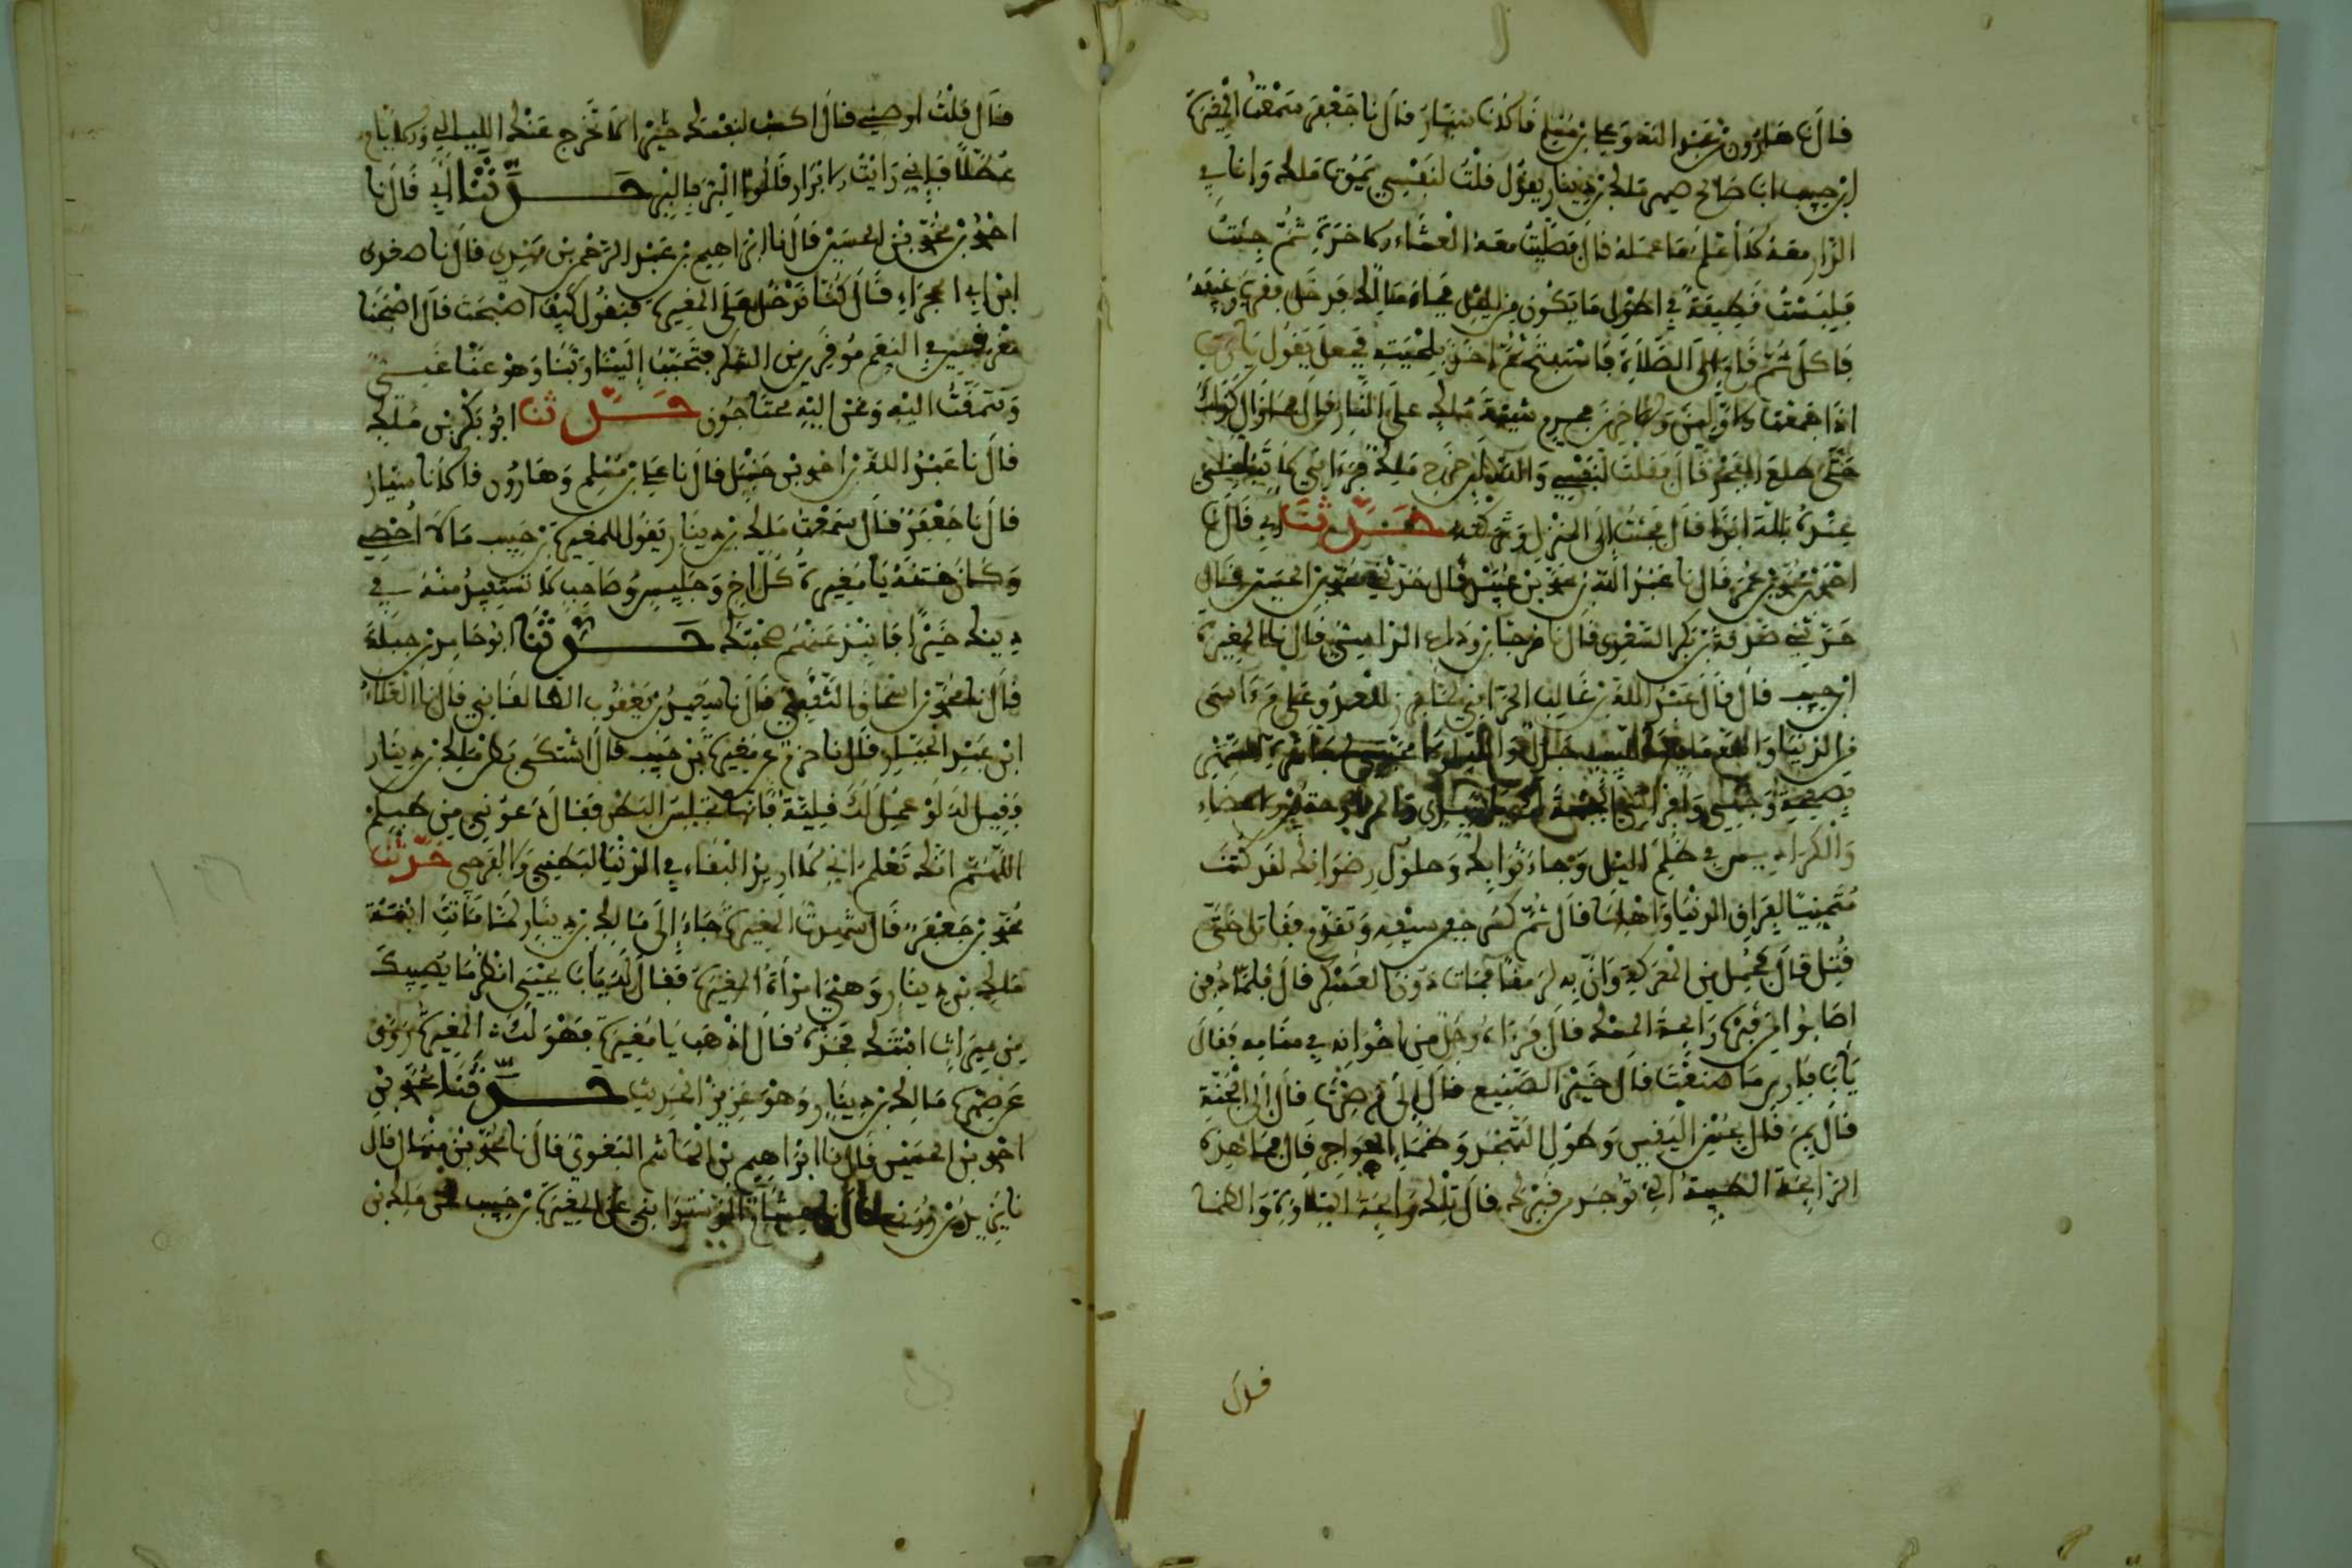 قال نا هارون بن عبد الله وعلي بن مسلم قالا نا سيار قال نا جعفر سمعت المغيرة
ابن حبيب ابا صالح صهر ملك بن دينار يقول قلت لنفسي يموت ملك وانا في
الدار معه لا اعلم ما عمله قال فصليت معه العشاء الاخرة ثم جئت
فلبست قطيفة في اطول ما يكون من الليل فجاء مالك فدخل فقرب رغيفه
فاكل ثم قام الى الصلاة فاستفتح ثم اخذ بلحيته فجعل يقول يا رب
اذا جمعت الاولين والاخرين فحرم شيبة مالك على النار قال فما زال كذلك
حتى طلع الفجر قال فقلت لنفسي والله لئن خرج ملك فرءاني لا تبلني
عنده بالة ابدا قال فجئت الى المنزل وتركته حدثنا ابي قال نا
احمد بن محمد بن عمر قال نا عبد الله بن محمد بن عبيد قال حدثني محمد بن الحسين قال
حدثني صدقة بن بكر السعدي قال نا مرجا بن وداع الراسبي قال نا المغيرة
ابن حبيب قال قال عبد الله بن غالب الحداني لما برز للعدو على م ءاسى
من الدنيا فوالله ما فيها للبيب جذل ووالله لولا محبتي لمباشرة السهر
بصفحة وجهي وافتراش الجبهة لك يا سيدي والمراوحة بين الاعضاء
والكراديس في ظلم الليل رجاء ثوابك وحلول رضوانك لقد كنت
متمنيا لفراق الدنيا واهلها قال ثم كسر جفن سيفه وتقدم فقاتل حتى
قتل قال فحمل من المعركة وان به لرمقا فمات دون العسكر قال فلما دفن
اصابوا من قبره رائحة المسك قال فرءاه رجل من اخوانه في منامه فقال
يابا فراس ما صنعت قال خير الصنيع قال الى م صرت قال الى الجنة
قال بم قال بحسن اليقين وطول التهجد وظماء الهواجر قال فما هذه
الرائحة الطيبة التي توجد من قبرك قال تلك رائحة التلاوة والظما
قال
قال قلت اوصني قال اكسب لنفسك خيرا لا تخرج عنك الليالي والايام
عطلا فاني رايت الابرار قالوا البر بالبر حدثنا ابي قال نا
احمد بن محمد بن الحسين قال نا ابراهيم بن عبد الرحمن بن مهدي قال نا صغدي
ابن ابي الحجراء قال كنا ندخل على المغيرة فنقول كيف اصبحت قال اصبحنا
مغرقين في النعم موقرين من الشكر يتحبب الينا ربنا وهو عنا غني
ونتمقت اليه ونحن اليه محتاجون حدثنا ابو بكر بن ملك
قال نا عبد الله بن احمد بن حنبل قال نا علي بن مسلم وهارون قالا نا سيار
قال نا جعفر قال سمعت ملك بن دينار يقول للمغيرة بن حبيب مالا احصي
وكان ختنه يا مغيرة كل اخ وجليس وصاحب لا تستفيد منه في
دينك خيرا فانبذ عنك صحبته حدثنا ابو حامد بن جبلة
قال نا محمد بن اسحاق الثقفي قال نا سعيد بن يعقوب الطالقاني قال نا العلاء
ابن عبد الجبار قال نا حزم عن مغيرة بن حبيب قال اشتكى بطن ملك بن دينار
فقيل له لو عمل لك قلية فانها تحبس البطن فقال دعوني من طبكم
اللهم انك تعلم اني لا اريد البقاء في الدنيا لبطني ولا لفرجي حدثنا
محمد بن جعفر قال شهدت المغيرة جاء الى مالك بن دينار لما ماتت ابنته
ملك بن دينار وهي امراة المغيرة فقال له يابا يحيى انظر ما يصيبك
من ميراث ابنتك فخذه قال اذهب يا مغيرة فهو لك المغيرة روى
عن صهره مالك بن دينار وهو عزيز الحديث حدثنا محمد بن
احمد بن الحسين قال نا ابراهيم بن الهاشم البغوي قال نا محمد بن منهال قال
نا يزيد بن زريع قال نا هشام الدستوائي عن المغيرة بن حبيب عن ملك بن